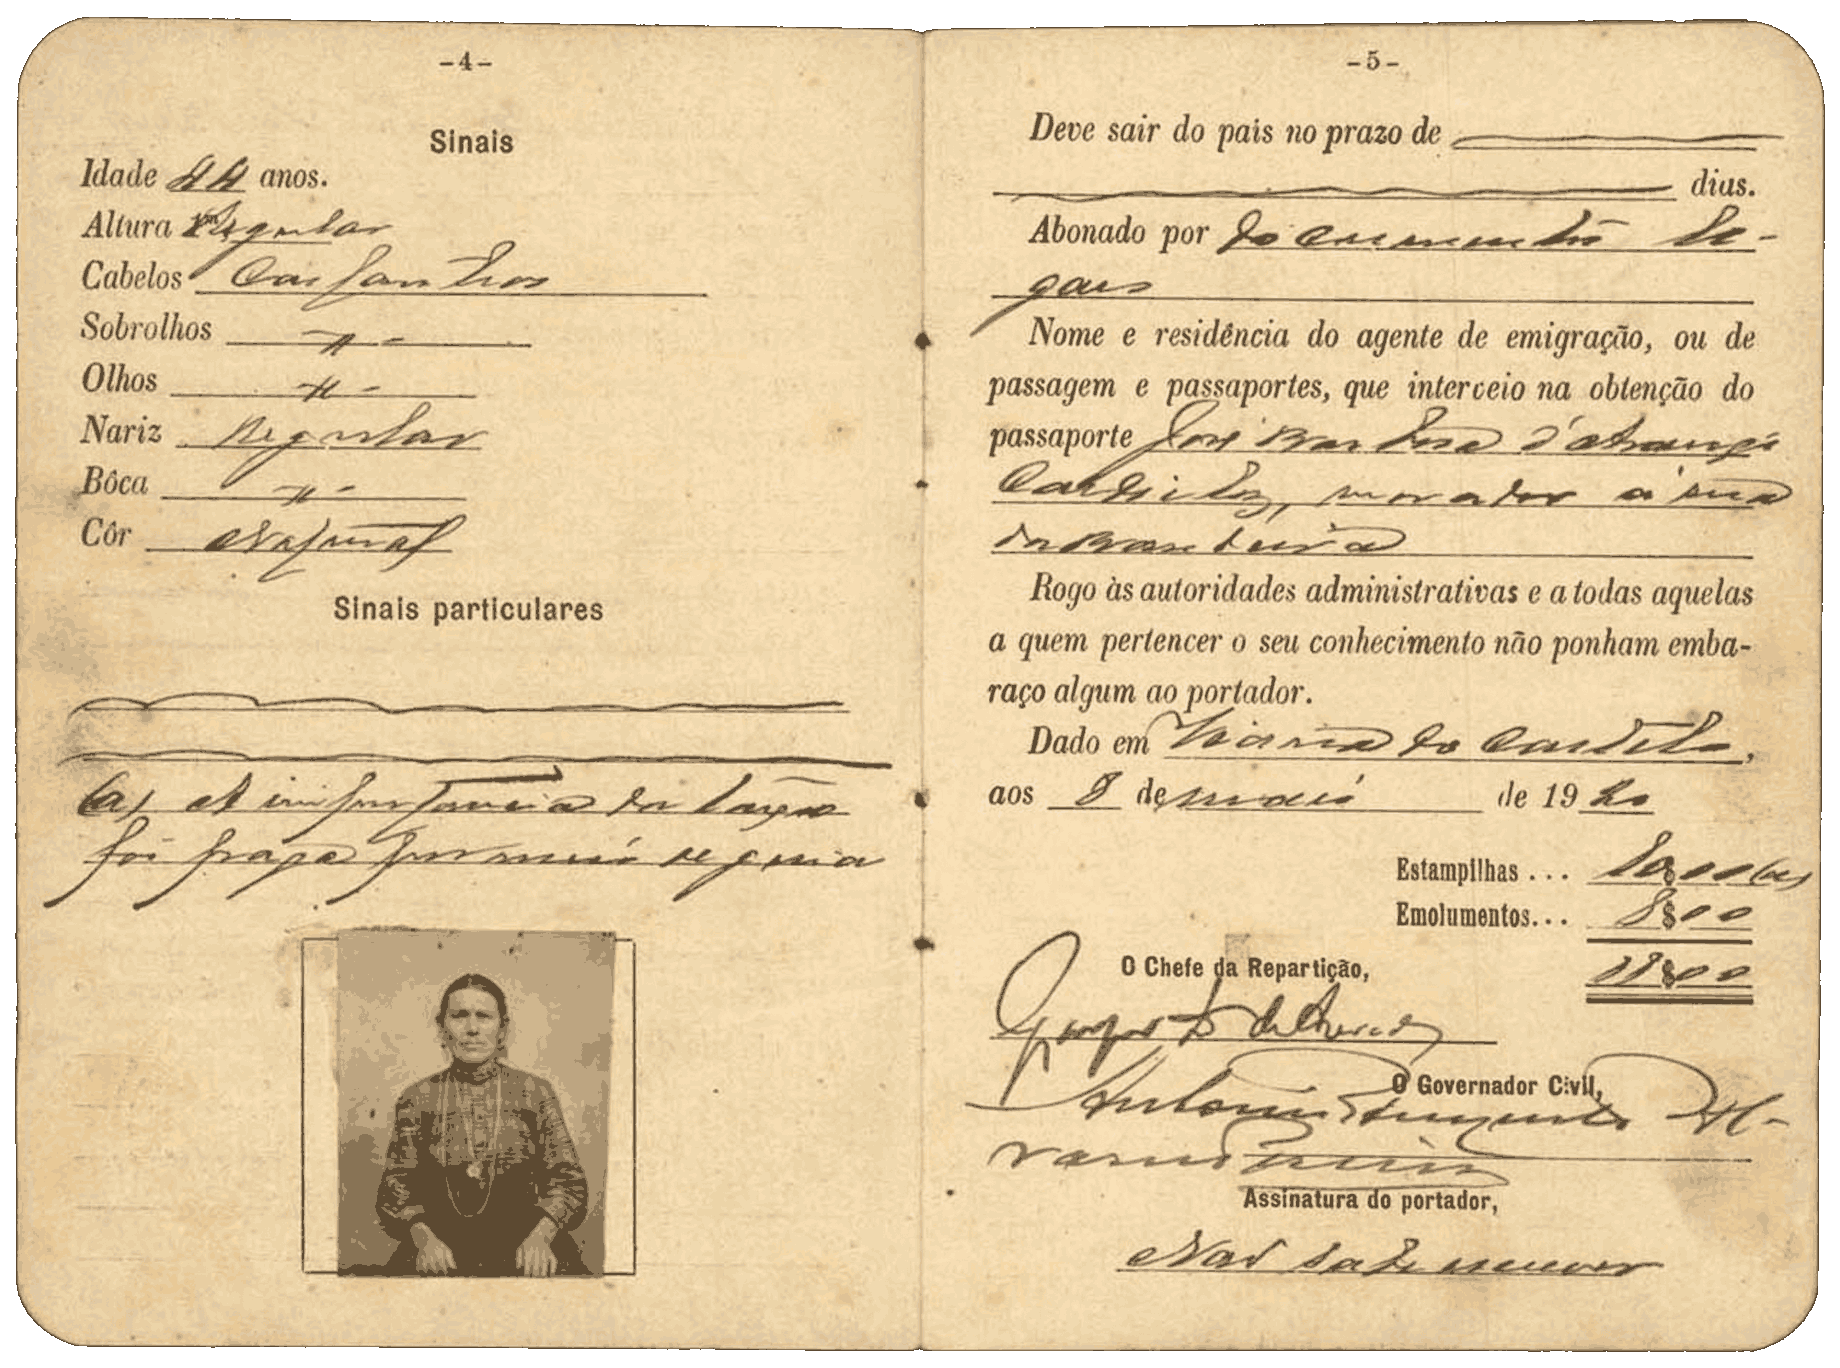 -4-
Sinais
Idade 44 anos.
Altura Regular
Cabelos Castanhos
Sobrolhos -"-
Olhos -"-
Nariz Regular
Bôca -"-
Côr Natural
Sinais particulares
(a) A importancia da
foi paga por meio de guia
-5-
Deve sair do pais no prazo de
dias.
Abonado por documentos le-
gaes
Nome e residência do agente de emigração, ou de
passagem e passaportes, que interveio na obtenção do
passaporte José Barbosa d'Araujo
morador á rua
da Bandeira
Rogo às autoridades administrativas e a todas aquelas
a quem pertencer o seu conhecimento não ponham emba-
raço algum ao portador.
Dado em Viana do Castelo,
aos 8 de maio de 1920
Estampilhas ... (a)
Emolumentos... 8$00
O Chefe da Repartição,
O Governador Civil,
Antonio
Assinatura do portador,
Não sabe escrever